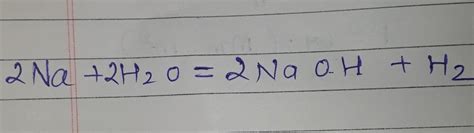 2Na +2H2O = 2NaOH + H2